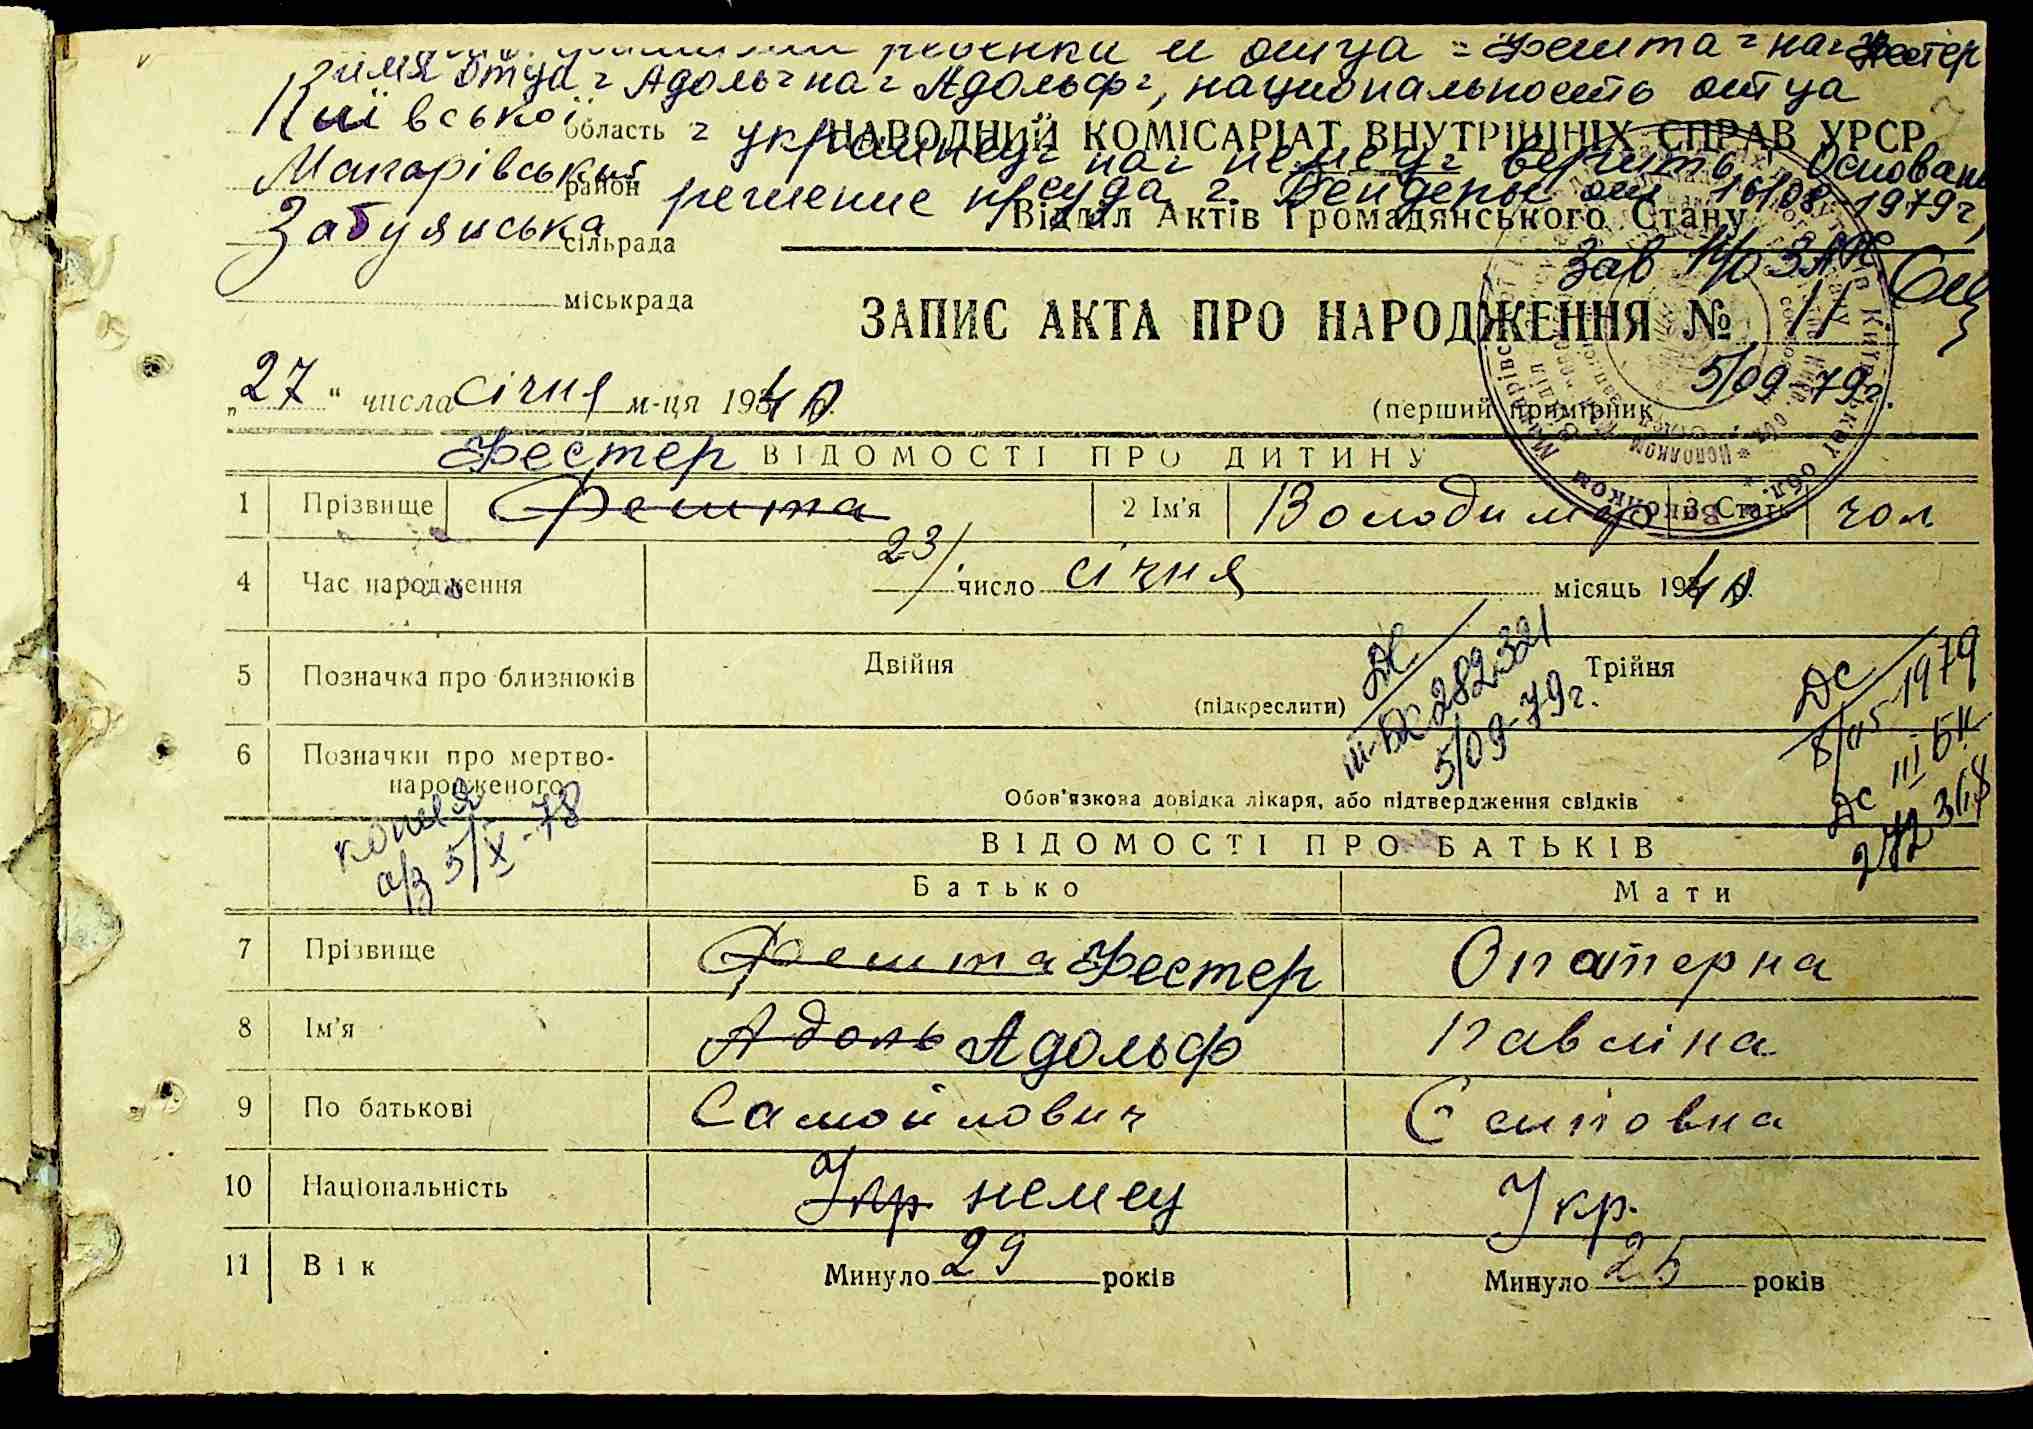 ребенка и отца "Фешта" на "Фестер
имя отца "Адоль" на "Адольф", национальность отца
Київської область "украинец" на "немец" верить Основан
НАРОДНИЙ КОМІСАРІАТ ВНУТРІШНІХ СПРАВ УРСР
Макарівський район решение нсуда г. Бендеры от 16/08-1979г,
Відділ Актів Громадянського Стану
Забуянська сільрада
Зав
міськрада
ЗАПИС АКТА ПРО НАРОДЖЕННЯ № 11
5/09-79г.
„27" числа січня м-ця 1940 р.
(перший примірник
Фестер
ВІДОМОСТІ ПРО ДИТИНУ
1 Прізвище Фешта 2 Ім'я Володимир 3 Стать чол
4 Час народження 23 число січня місяць 1940 р.
5 Позначка про близнюків Двійня (підкреслити) Трійня
282321
5/09-79г.
ДС
8/05 1979
6 Позначки про мертво-
народженого
Обов'язкова довідка лікаря, або підтвердження свідків
копия
5/X-78
ВІДОМОСТІ ПРО БАТЬКІВ
Батько Мати
7 Прізвище Фешта Фестер Опатерна
8 Ім'я Адоль Адольф Павліна
9 По батькові Самойлович Єсиповна
10 Національність Укр немец Укр.
11 Вік Минуло 29 років Минуло 25 років